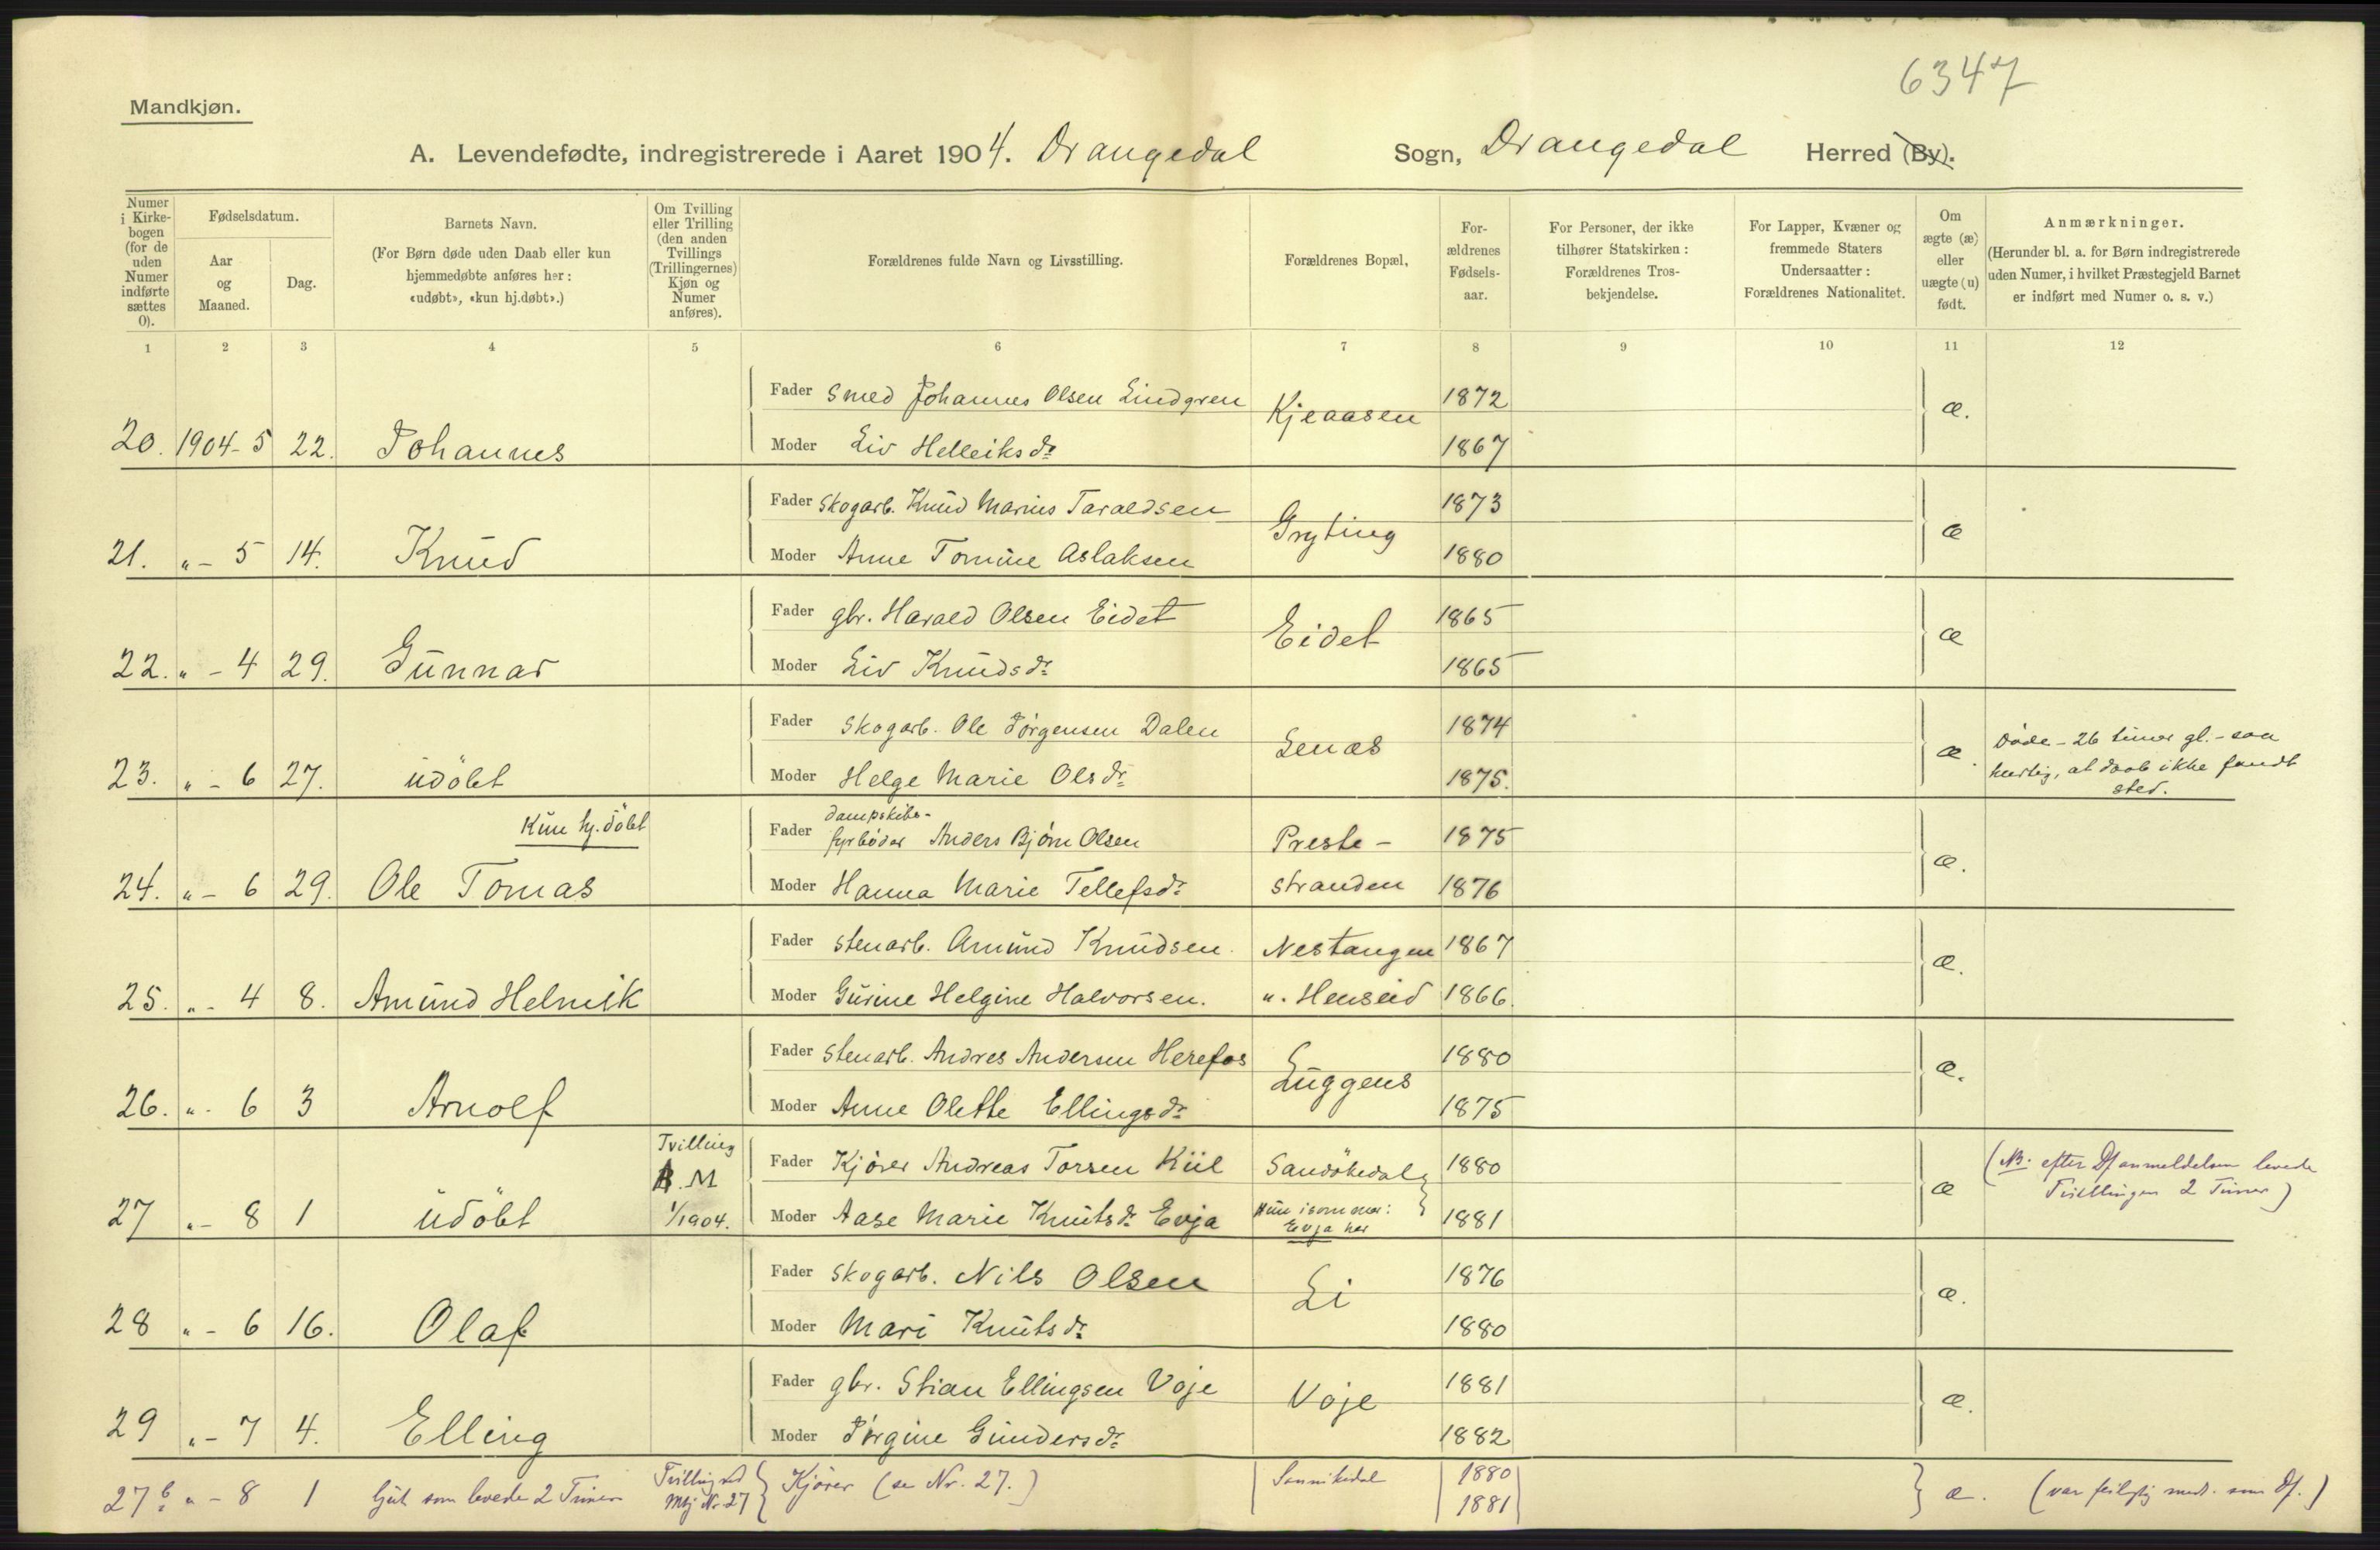 6347
Mandkjøn.
A. Levendefødte, indregistrerede i Aaret 1904. Drangedal Sogn, Drangedal Herred (By).
Numer i Kirkebogen (for de uden Numer indførte sættes 0).
Fødselsdatum.
Aar og Maaned.
Dag.
Barnets Navn.
(For Børn døde uden Daab eller kun
hjemmedøbte anføres her:
«udøbt», «kun hj.døbt».)
Om Tvilling
eller Trilling
(den anden
Tvillings
(Trillingernes)
Kjøn og
Numer
anføres).
Forældrenes fulde Navn og Livsstilling.
Forældrenes Bopæl,
For-
ældrenes
Fødsels-
aar.
For Personer, der ikke
tilhører Statskirken:
Forældrenes Tros-
bekjendelse.
For Lapper, Kvæner og
fremmede Staters
Undersaatter:
Forældrenes Nationalitet.
Om
ægte (æ)
eller
uægte (u)
født.
Anmærkninger.
(Herunder bl. a. for Børn indregistrerede
uden Numer, i hvilket Præstegjeld Barnet
er indført med Numer o. s. v.)
1 2 3 4 5 6 7 8 9 10 11 12
Fader Smed Johannes Olsen Lindgren Kjeaasen 1872 æ.
20. 1904-5 22. Johannes Moder Liv Helleiksdr 1867
Fader Skogarb. Knud Marius Taraldsen Gryting 1873 æ
21. " - 5 14. Knud Moder Anne Tomine Aslaksen 1880
Fader gbr. Harald Olsen Eidet Eidet 1865 æ
22. " - 4 29. Gunnar Moder Liv Knudsdr 1865
Fader Skogarb. Ole Jørgensen Dalen Lenæs 1874 æ. Døde - 26 timer gl. - saa
23. " - 6 27. udöbt Moder Helge Marie Olsdr 1875. hurtig, at daab ikke fandt
sted.
Kun hj. döbt
Fader dampskibs-
fyrbøder Anders Bjørn Olsen Preste- 1875 æ.
24. " - 6 29. Ole Tomas Moder Hanna Marie Tellefsdr stranden 1876
Fader stenarb. Amund Knudsen. Nestangen 1867 æ.
25. " - 4 8. Amund Helmik Moder Gurine Helgine Halvorsen. u. Henseid 1866.
Fader Stenarb. Andres Andersen Herefos Luggens 1880 æ.
26. " - 6 3 Arnolf Moder Anne Olette Ellingsdr 1875
Tvilling
M Fader Kjører Andreas Torsen Kiil Sandökedal 1880 æ (NB. efter Df anmeldelsen levede
27 " - 8 1 udöbt 1/1904. Moder Aase Marie Knutsdr Evja Hun isommer: 1881 Tvillingen 2 Timer)
Evja her
Fader Skogarb. Nils Olsen Li 1876 æ.
28 " - 6 16. Olaf Moder Mari Knutsdr 1880
Fader gbr. Stian Ellingsen Voje Voje 1881 æ.
29 " - 7 4. Elling Moder Jörgine Gundersdr 1882
27b " - 8 1 Gut som levede 2 Timer Tvilling med Kjörer (se Nr. 27.) Sannikedal 1880 æ. (var feilagtig medt. som Df.)
Nr 27 1881